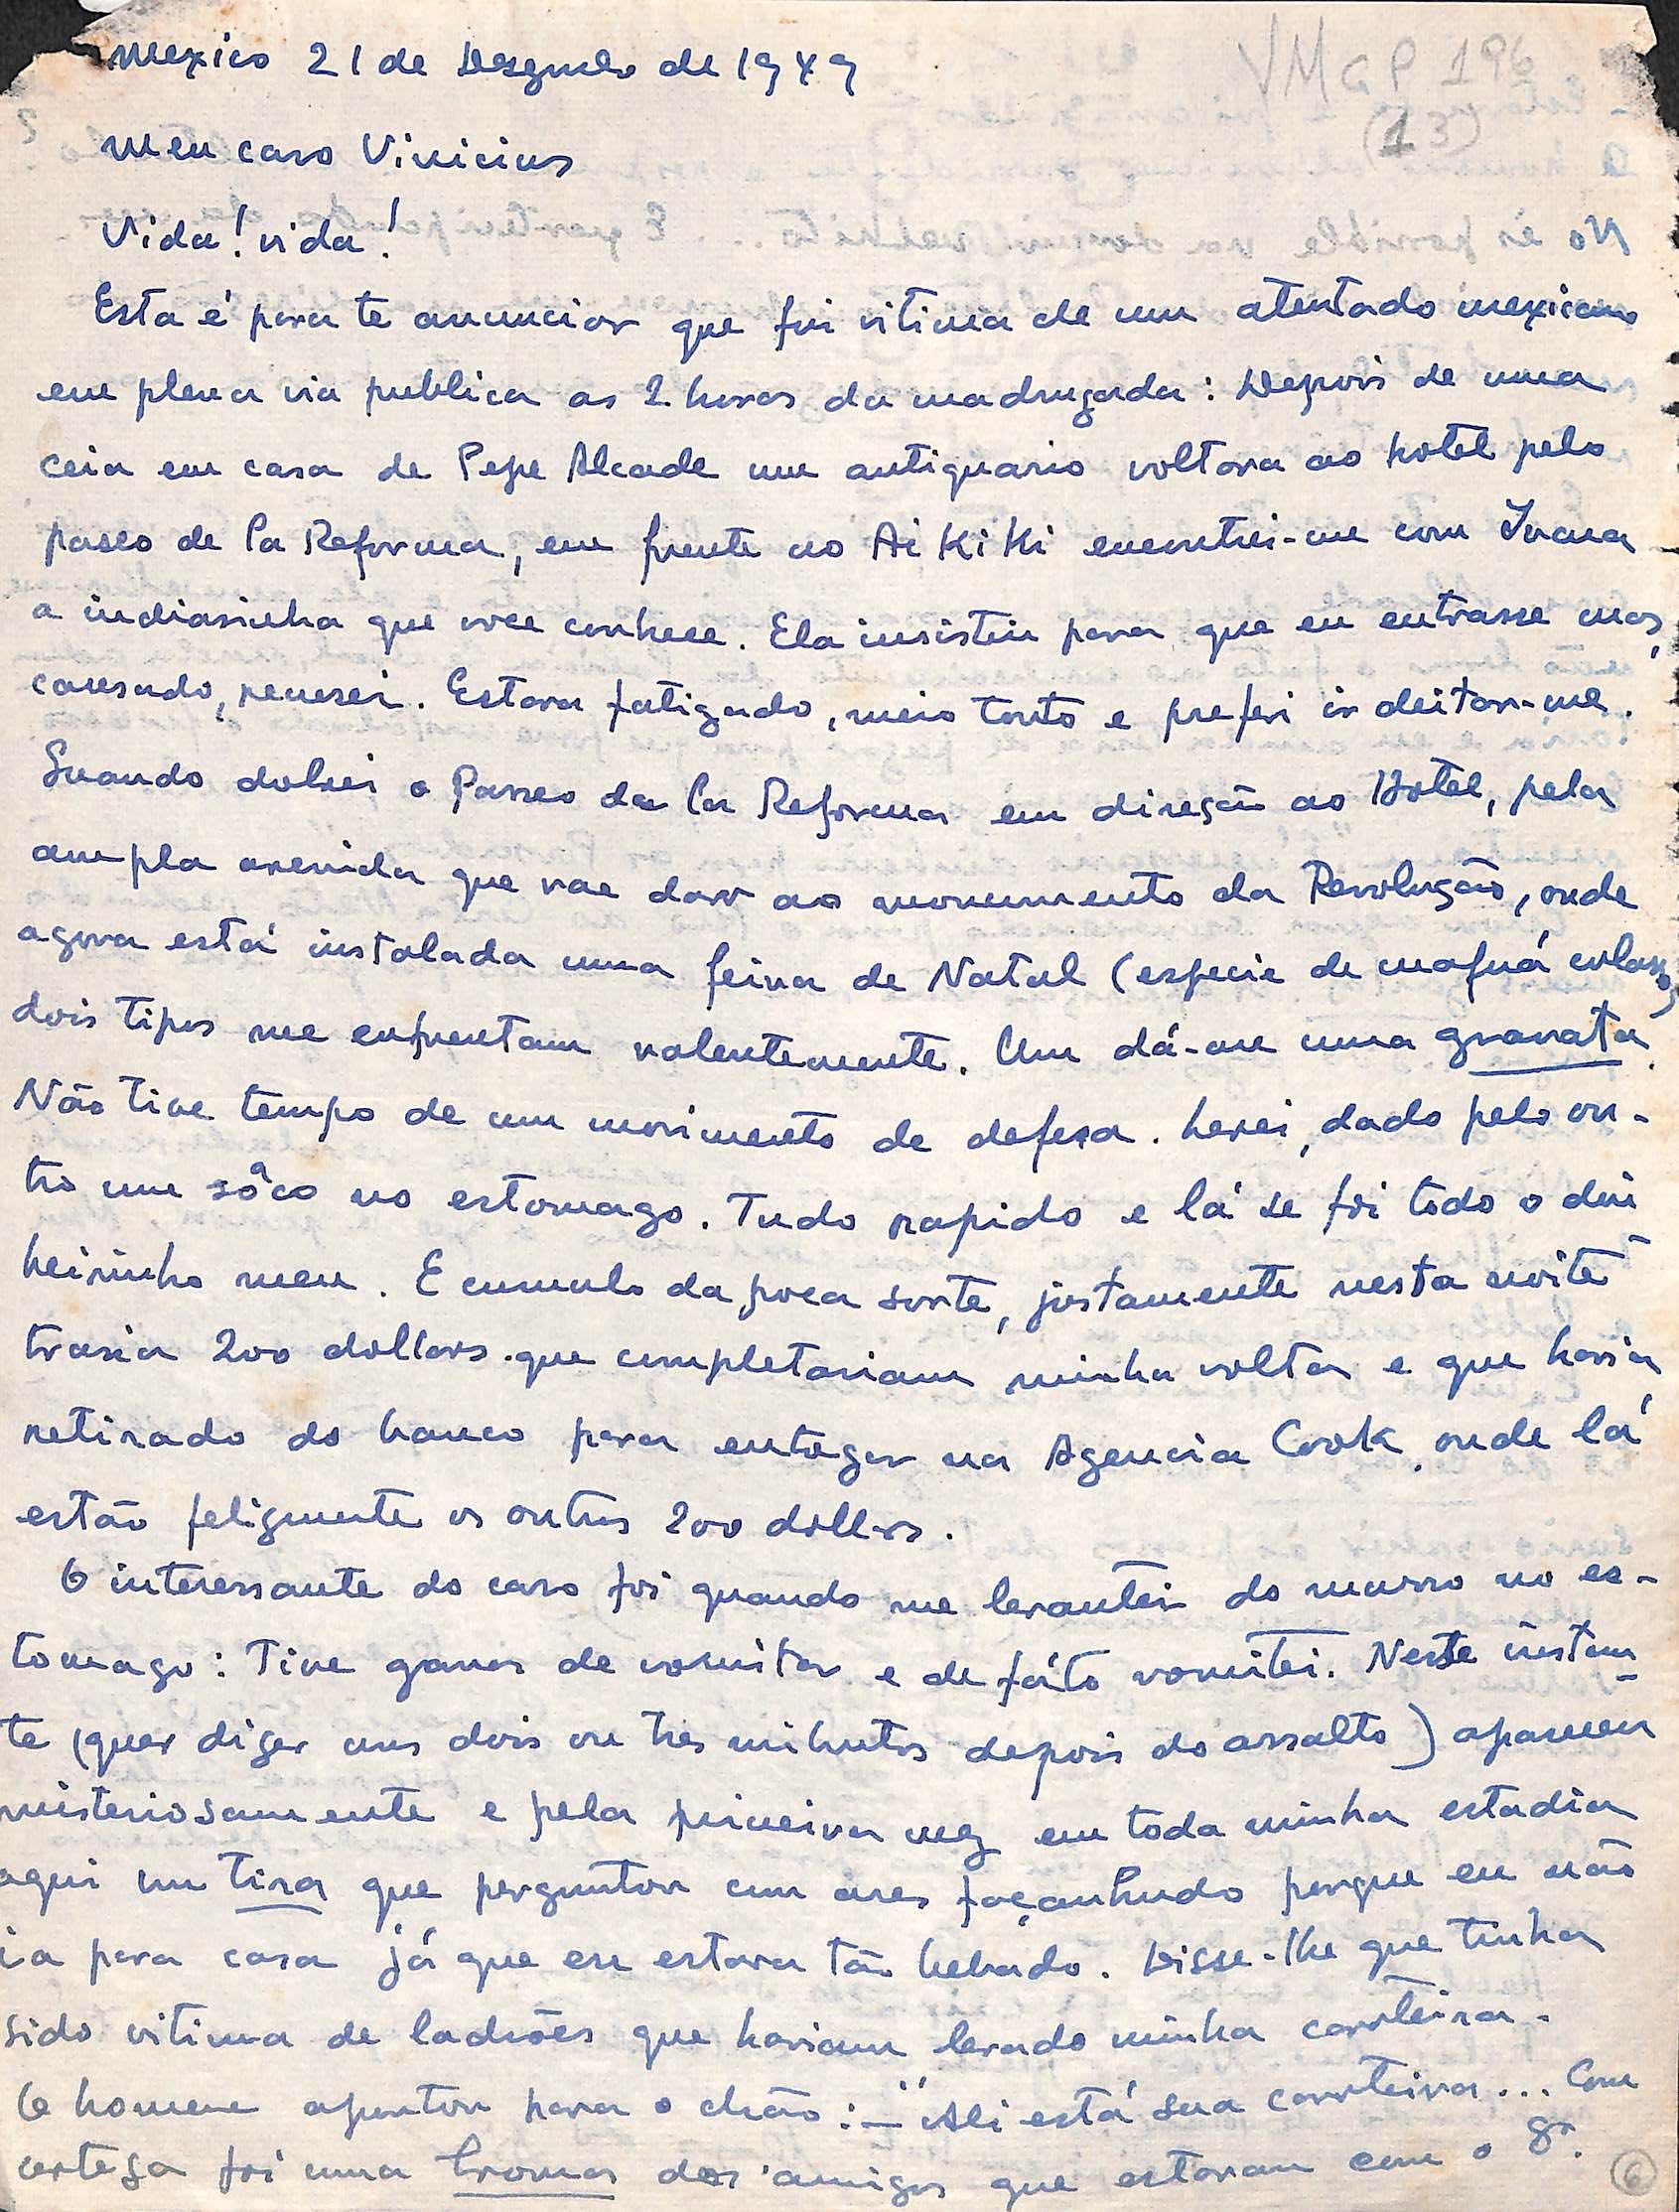 VMCP 196
(13)
Mexico 21 de Dezembro de 1949
Meu caro Vinicius
Vida! vida!
Esta é para te anunciar que fui vitima de um atentado mexicano
em plena via publica as 2 horas da madrugada: Depois de uma
ceia em casa de Pepe Alcade um antiquario voltava ao hotel pelo
paseo de la Reforma, em frente ao Ai Ki Ki encontrei-me com Juana
a indiasinha que voce conhece. Ela insistiu para que eu entrasse mas,
cansado, recusei. Estava fatigado, meio tonto e preferi ir deitar-me.
Quando dobrei o Passeo de la Reforma em direção ao Hotel, pela
ampla avenida que vae dar ao monumento da Revolução, onde
agora está instalada uma feira de Natal (especie de mafuá
dois tipos me enfrentam valentemente. Um dá-me uma gravata.
Não tive tempo de um movimento de defesa. Levei, dado pelo ou-
tro um sôco no estomago. Tudo rapido e lá se foi todo o din
heirinho meu. E cumulo da pouca sorte, justamente nesta noite
trasia 200 dollars que completariam minha volta e que havia
retirado do banco para entregar na Agencia Cook, onde lá
estão felizmente os outros 200 dollars.
O interessante do caso foi quando me levantei do murro no es-
tomago: Tive ganas de vomitar e de fáto vomitei. Neste instan-
te (quer dizer uns dois ou tres minutos depois do assalto) apareceu
misteriosamente e pela primeira vez em toda minha estadia
aqui um tira que perguntou com ares façanhudo porque eu não
ia para casa já que eu estava tão bebado. Disse-lhe que tinha
sido vitima de ladrões que haviam levado minha carteira.
O homem apontou para o chão: — "Ali está sua carteira... Com
certesa foi uma broma dos amigos que estavam com o Sr.
6